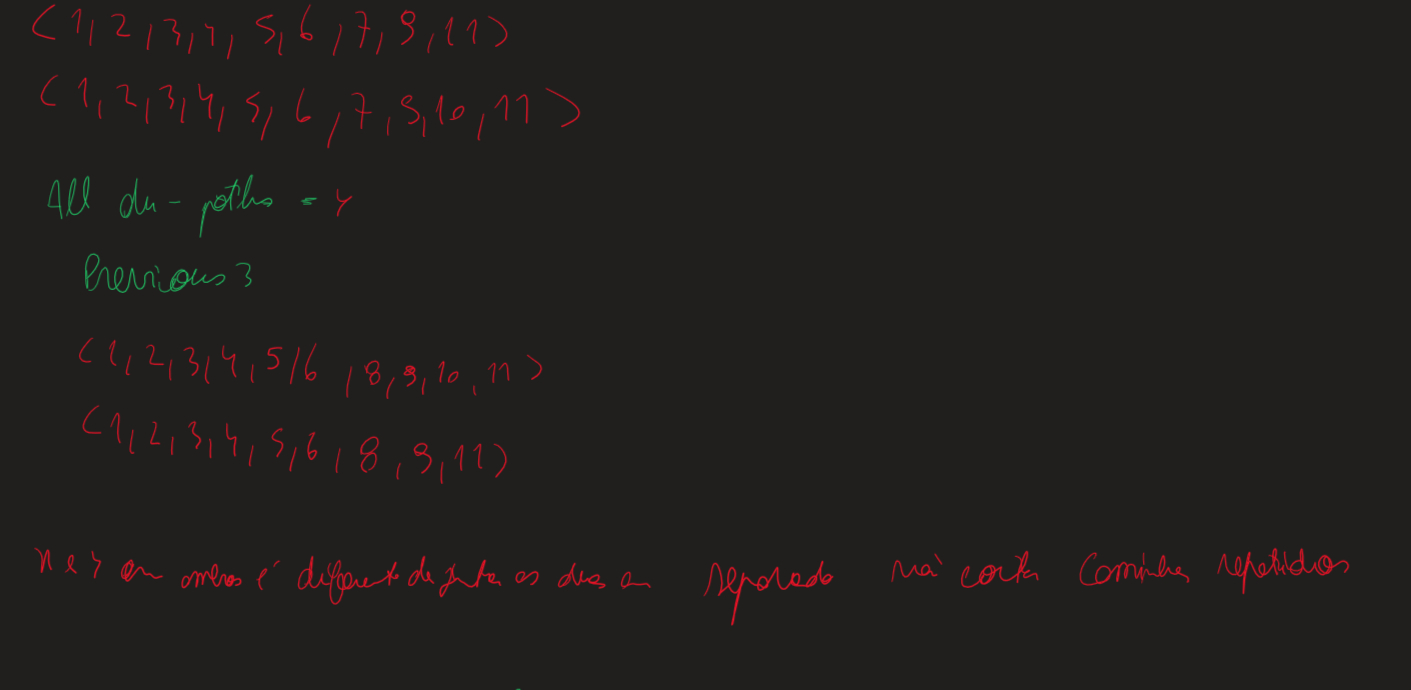 <1, 2, 3, 4, 5, 6, 7, 9, 11>
<1, 2, 3, 4, 5, 6, 7, 9, 10, 11>
All du-paths = 4
Previous 3
<1, 2, 3, 4, 5, 6, 8, 9, 10, 11>
<1, 2, 3, 4, 5, 6, 8, 9, 11>
x e y em ambos é diferente de junta os dos em separado não conta caminhos repetidos